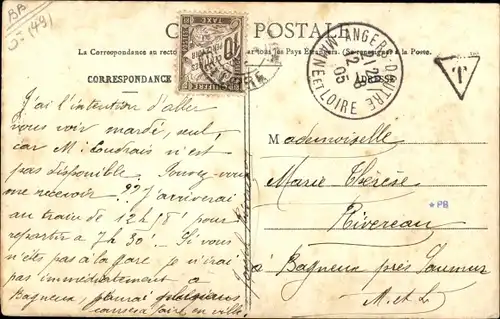 BA
C POSTALE
La Correspondance au recto tous les Pays Étrangers. (Se renseigner à la Poste.)
CORRESPONDANCE
ADRESSE
10
CENTIMES
A PERCEVOIR
TAXE
ANGERS-DOUTRE
MAINE ET LOIRE
05
T
J'ai l'intention d'aller
vous voir mardi, seul,
car M. n'est
pas disponible. Pouvez-vous
me recevoir ?? J'arriverai
au train de 12h18' pour
repartir à 7h30'. Si vous
n'êtes pas à la gare je n'irai
pas immédiatement à
Bagneux, j'aurai
courses à faire en ville.
Mademoiselle
Marie Thérèse
Rivereau
*PB
à Bagneux près Saumur
M. et L.